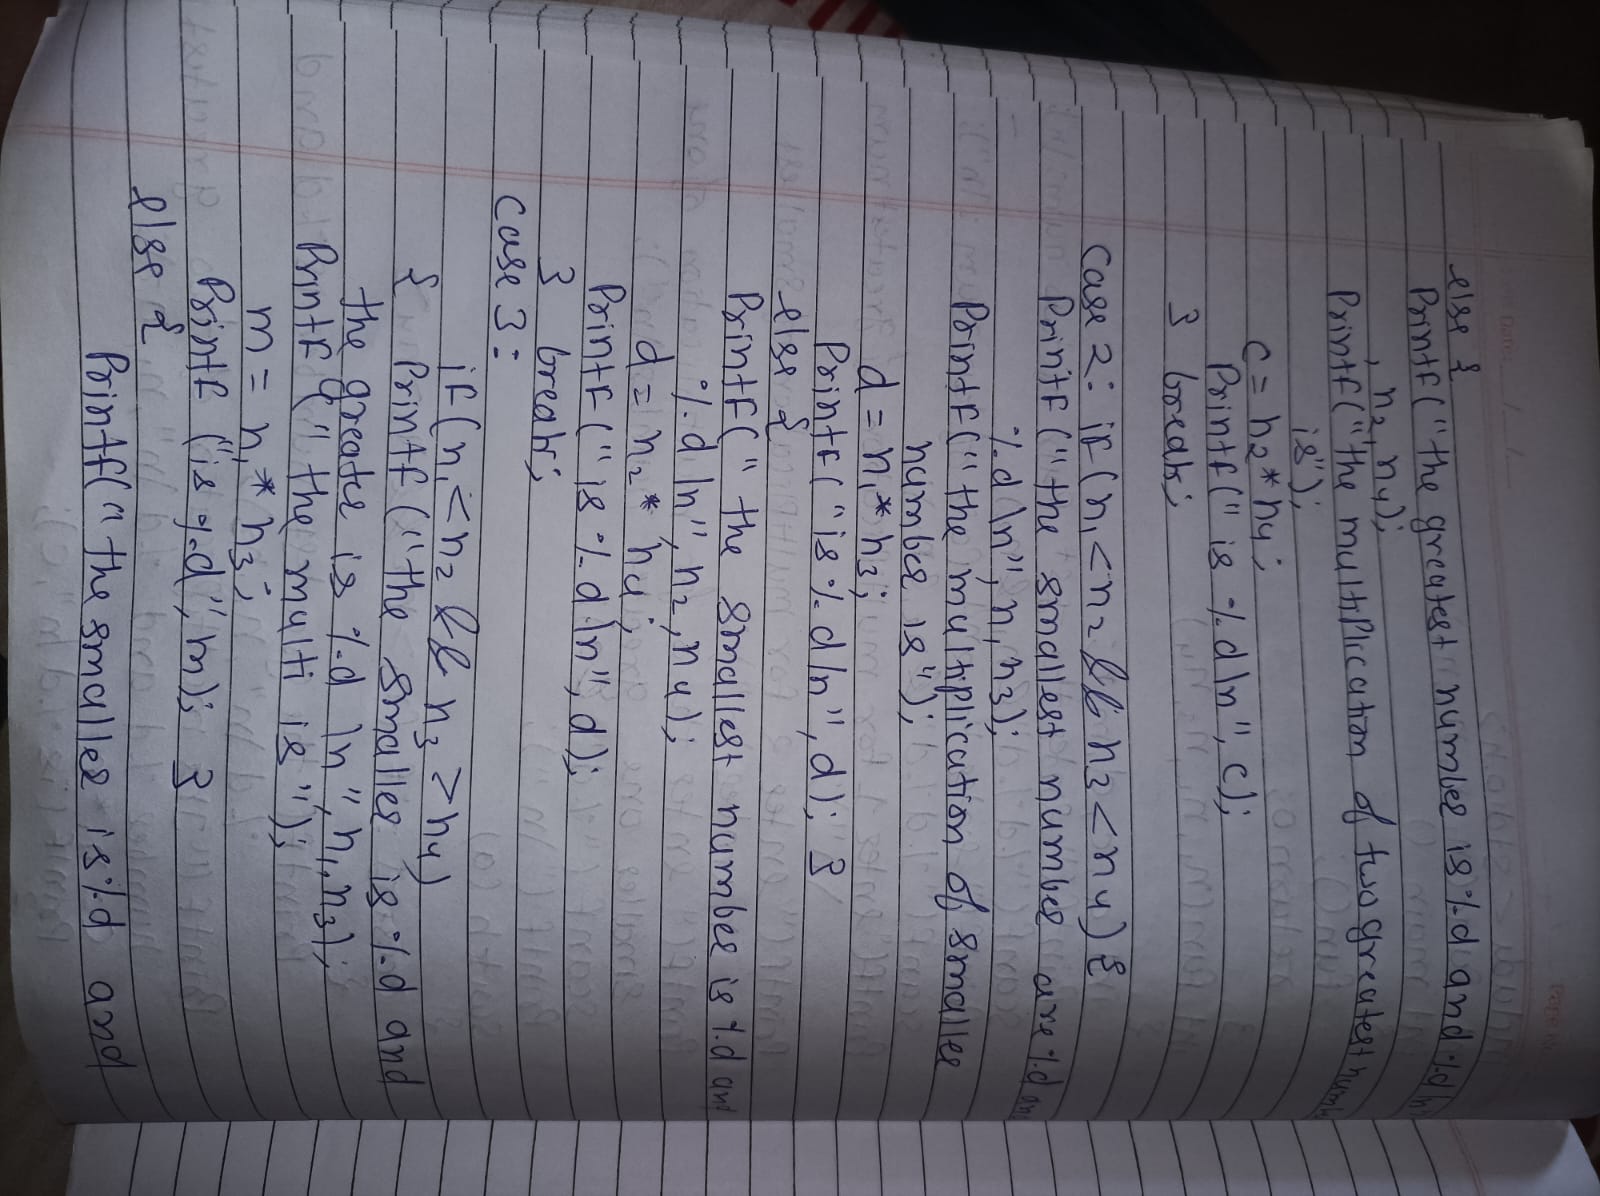 Page No.
Date: __/__/__
else {
Printf("the greatest number is %d and %d \n"
, n2, n4);
Printf("the multiplication of two greatest number
is");
c = n2 * n4;
Printf(" is %d \n", c);
} break;
case 2: if (n1 < n2 && n3 < n4) {
Printf ("the smallest number are %d and
%d \n", n1, n3);
Printf("the multiplication of smaller
number is");
d = n1 * n3;
Printf("is %d \n", d); }
else {
Printf(" the smallest number is %d and
%d \n", n2, n4);
d = n2 * n4;
Printf (" is %d \n", d);
} break;
case 3:
if (n1 < n2 && n3 > n4)
{ Printf ("the smaller is %d and
the greater is %d \n", n1, n3);
Printf (" the multi is ");
m = n1 * n3;
Printf ("is %d", m); }
else {
Printf(" the smaller is %d and